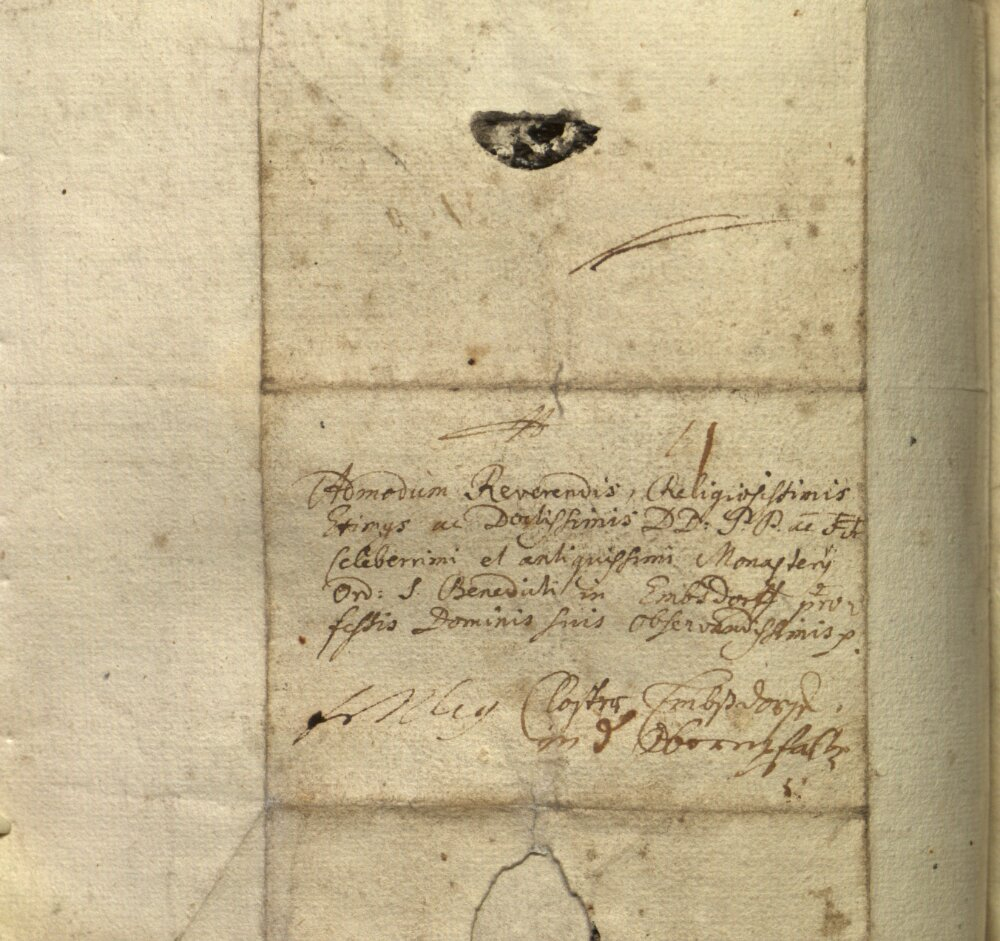 Admodum Reverendis, Religiosissimis
Eximys ac Doctissimis DD: P.P. ac FF
Celeberrimi et antiquissimi Monasterÿ
Ord: S Benedicti in Embsdorff pro-
fessis Dominis suis Observandissimis
Closter Embßdorff,
in d Oberenpfaltz